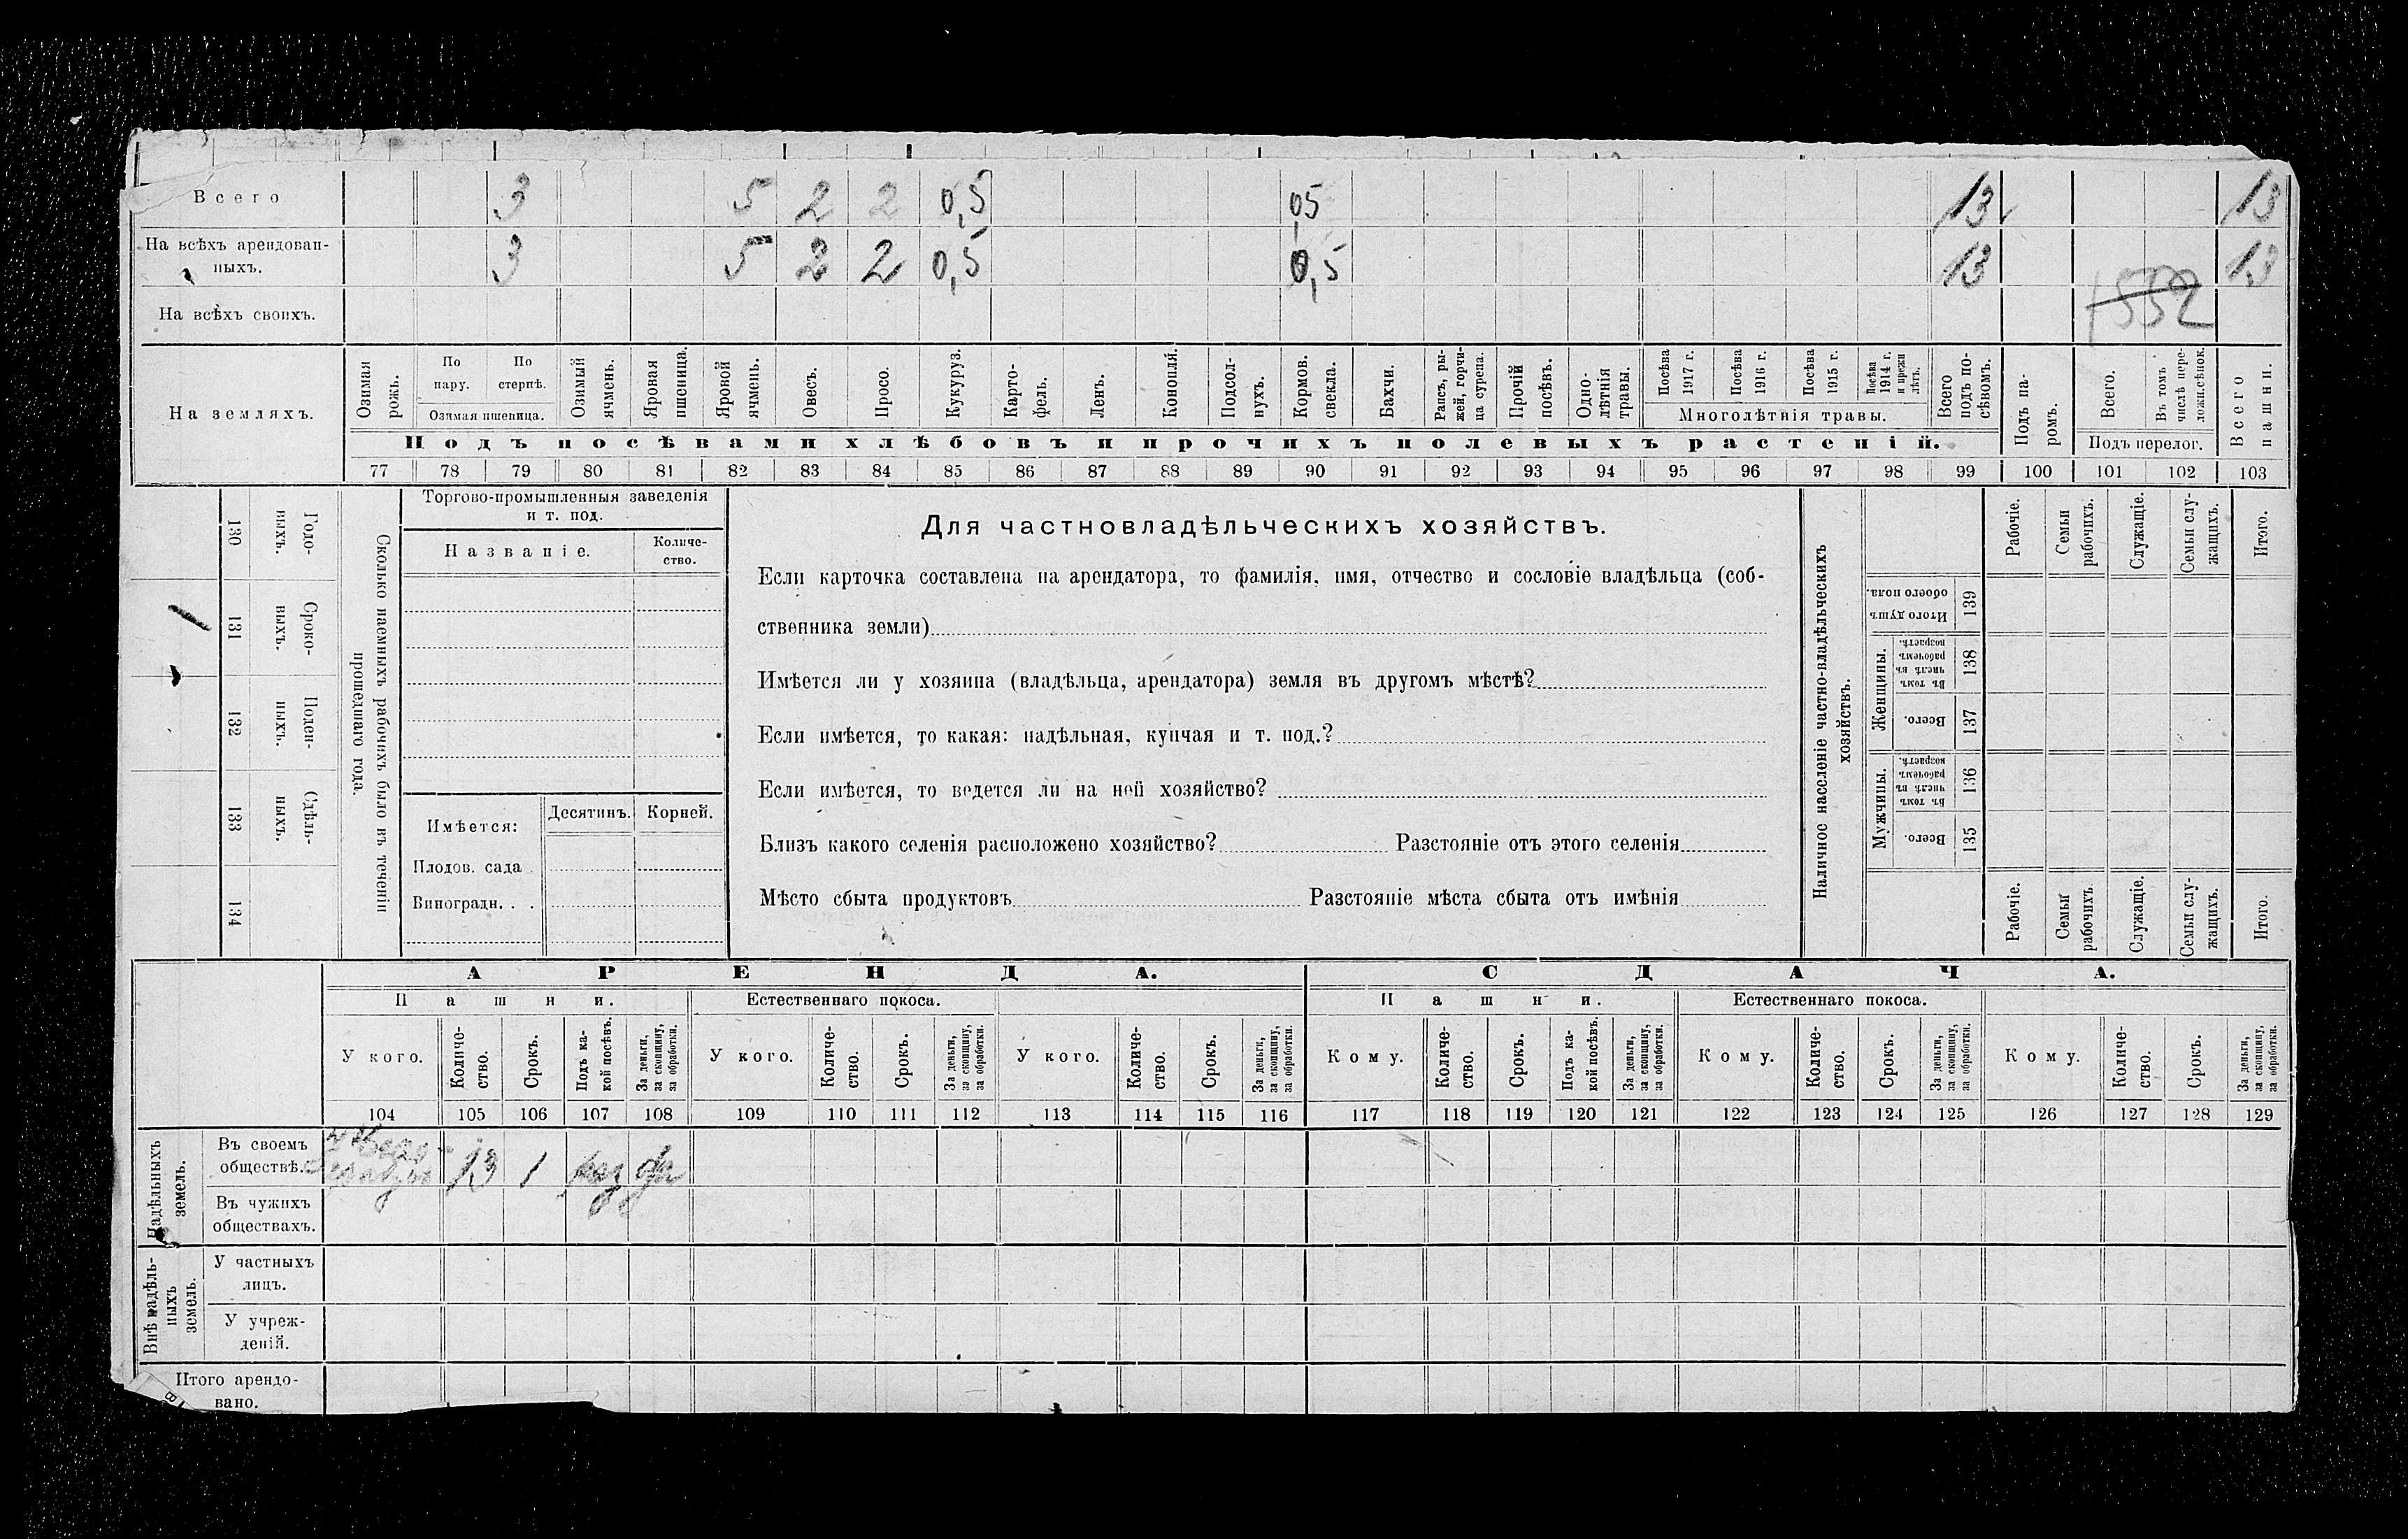 Всего 3 5 2 2 0,5 0,5 13 13
На всѣхъ арендован-
ныхъ. 3 5 2 2 0,5 0,5 13 13
На всѣхъ своихъ. 1552
На земляхъ.
Озимая рожь.
По пару.
По стернѣ.
Озимая пшеница.
Озимый ячмень.
Яровая пшеница.
Яровой ячмень.
Овесъ.
Просо.
Кукуруз.
Карто-
фель.
Ленъ.
Конопля.
Подсол-
нухъ.
Кормов. свекла.
Бахчи.
Рапсъ, ры-
жей, горчи-
ца сурепа.
Прочій посѣвъ.
Одно-
лѣтнія травы.
Посѣва 1917 г.
Посѣва 1916 г.
Посѣва 1915 г.
Посѣва 1914 г. и прежн лѣтъ.
Многолѣтнія травы.
Всего подъ по-
сѣвомъ.
Подъ па-
ромъ.
Всего.
Въ томъ числѣ пере-
ложн.сѣнок.
Подъ перелог.
Всего пашни.
Подъ посѣвами хлѣбовъ и прочихъ полевыхъ растеній.
77 78 79 80 81 82 83 84 85 86 87 88 89 90 91 92 93 94 95 96 97 98 99 100 101 102 103
130 Годо-
выхъ.
131 Сроко-
выхъ.
132 Поден-
ныхъ.
133 Сдѣль-
ныхъ.
134
Сколько наемныхъ рабочихъ было въ теченіи
прошеднаго года.
Торгово-промышленныя заведенія
и т. под.
Названіе.
Количе-
ство.
Имѣется:
Десятинъ.
Корней.
Плодов. сада
Виноградн. . .
Для частновладѣльческихъ хозяйствъ.
Если карточка составлена на арендатора, то фамилія, имя, отчество и сословіе владѣльца (соб-
ственника земли)
Имѣется ли у хозяина (владѣльца, арендатора) земля въ другомъ мѣстѣ?
Если имѣется, то какая: надѣльная, купчая и т. под.?
Если имѣется, то ведется ли на ней хозяйство?
Близъ какого селенія расположено хозяйство? Разстояніе отъ этого селенія
Мѣсто сбыта продуктовъ Разстояніе мѣста сбыта отъ имѣнія
Наличное населеніе частно-владѣльческихъ
хозяйствъ.
Рабочіе.
Семьи рабочихъ.
Служащіе.
Семьи слу-
жащихъ.
Итого.
Итого душъ обоего пола.
139
Женщины.
Въ томъ числѣ въ рабочемъ возрастѣ.
138
Всего.
137
Мужчины.
Въ томъ числѣ въ рабочемъ возрастѣ.
136
Всего.
135
Рабочіе.
Семьи рабочихъ
Служащіе.
Семьи слу-
жащихъ.
Итого.
АРЕНДА. СДАЧА.
Пашни. Естественнаго покоса. Пашни. Естественнаго покоса.
У кого.
Количе-
ство.
Срокъ.
Подъ ка-
кой посѣвъ.
За деньги, за скопщину, за обработки.
У кого.
Количе-
ство.
Срокъ.
За деньги, за скопщину, за обработки.
У кого.
Количе-
ство.
Срокъ.
За деньги, за скопщину, за обработки.
Кому.
Количе-
ство.
Срокъ.
Подъ ка-
кой посѣвъ.
За деньги, за скопщину, за обработки.
Кому.
Количе-
ство.
Срокъ.
За деньги, за скопщину, за обработки.
Кому.
Количе-
ство.
Срокъ.
За деньги, за скопщину, за обработки.
104 105 106 107 108 109 110 111 112 113 114 115 116 117 118 119 120 121 122 123 124 125 126 127 128 129
Надѣльныхъ земель.
Въ своемъ
обществѣ. 13 1
Въ чужихъ
обществахъ.
Внѣ надѣль-
ныхъ земель.
У частныхъ
лицъ.
У учреж-
деній.
Итого арендо-
вано.